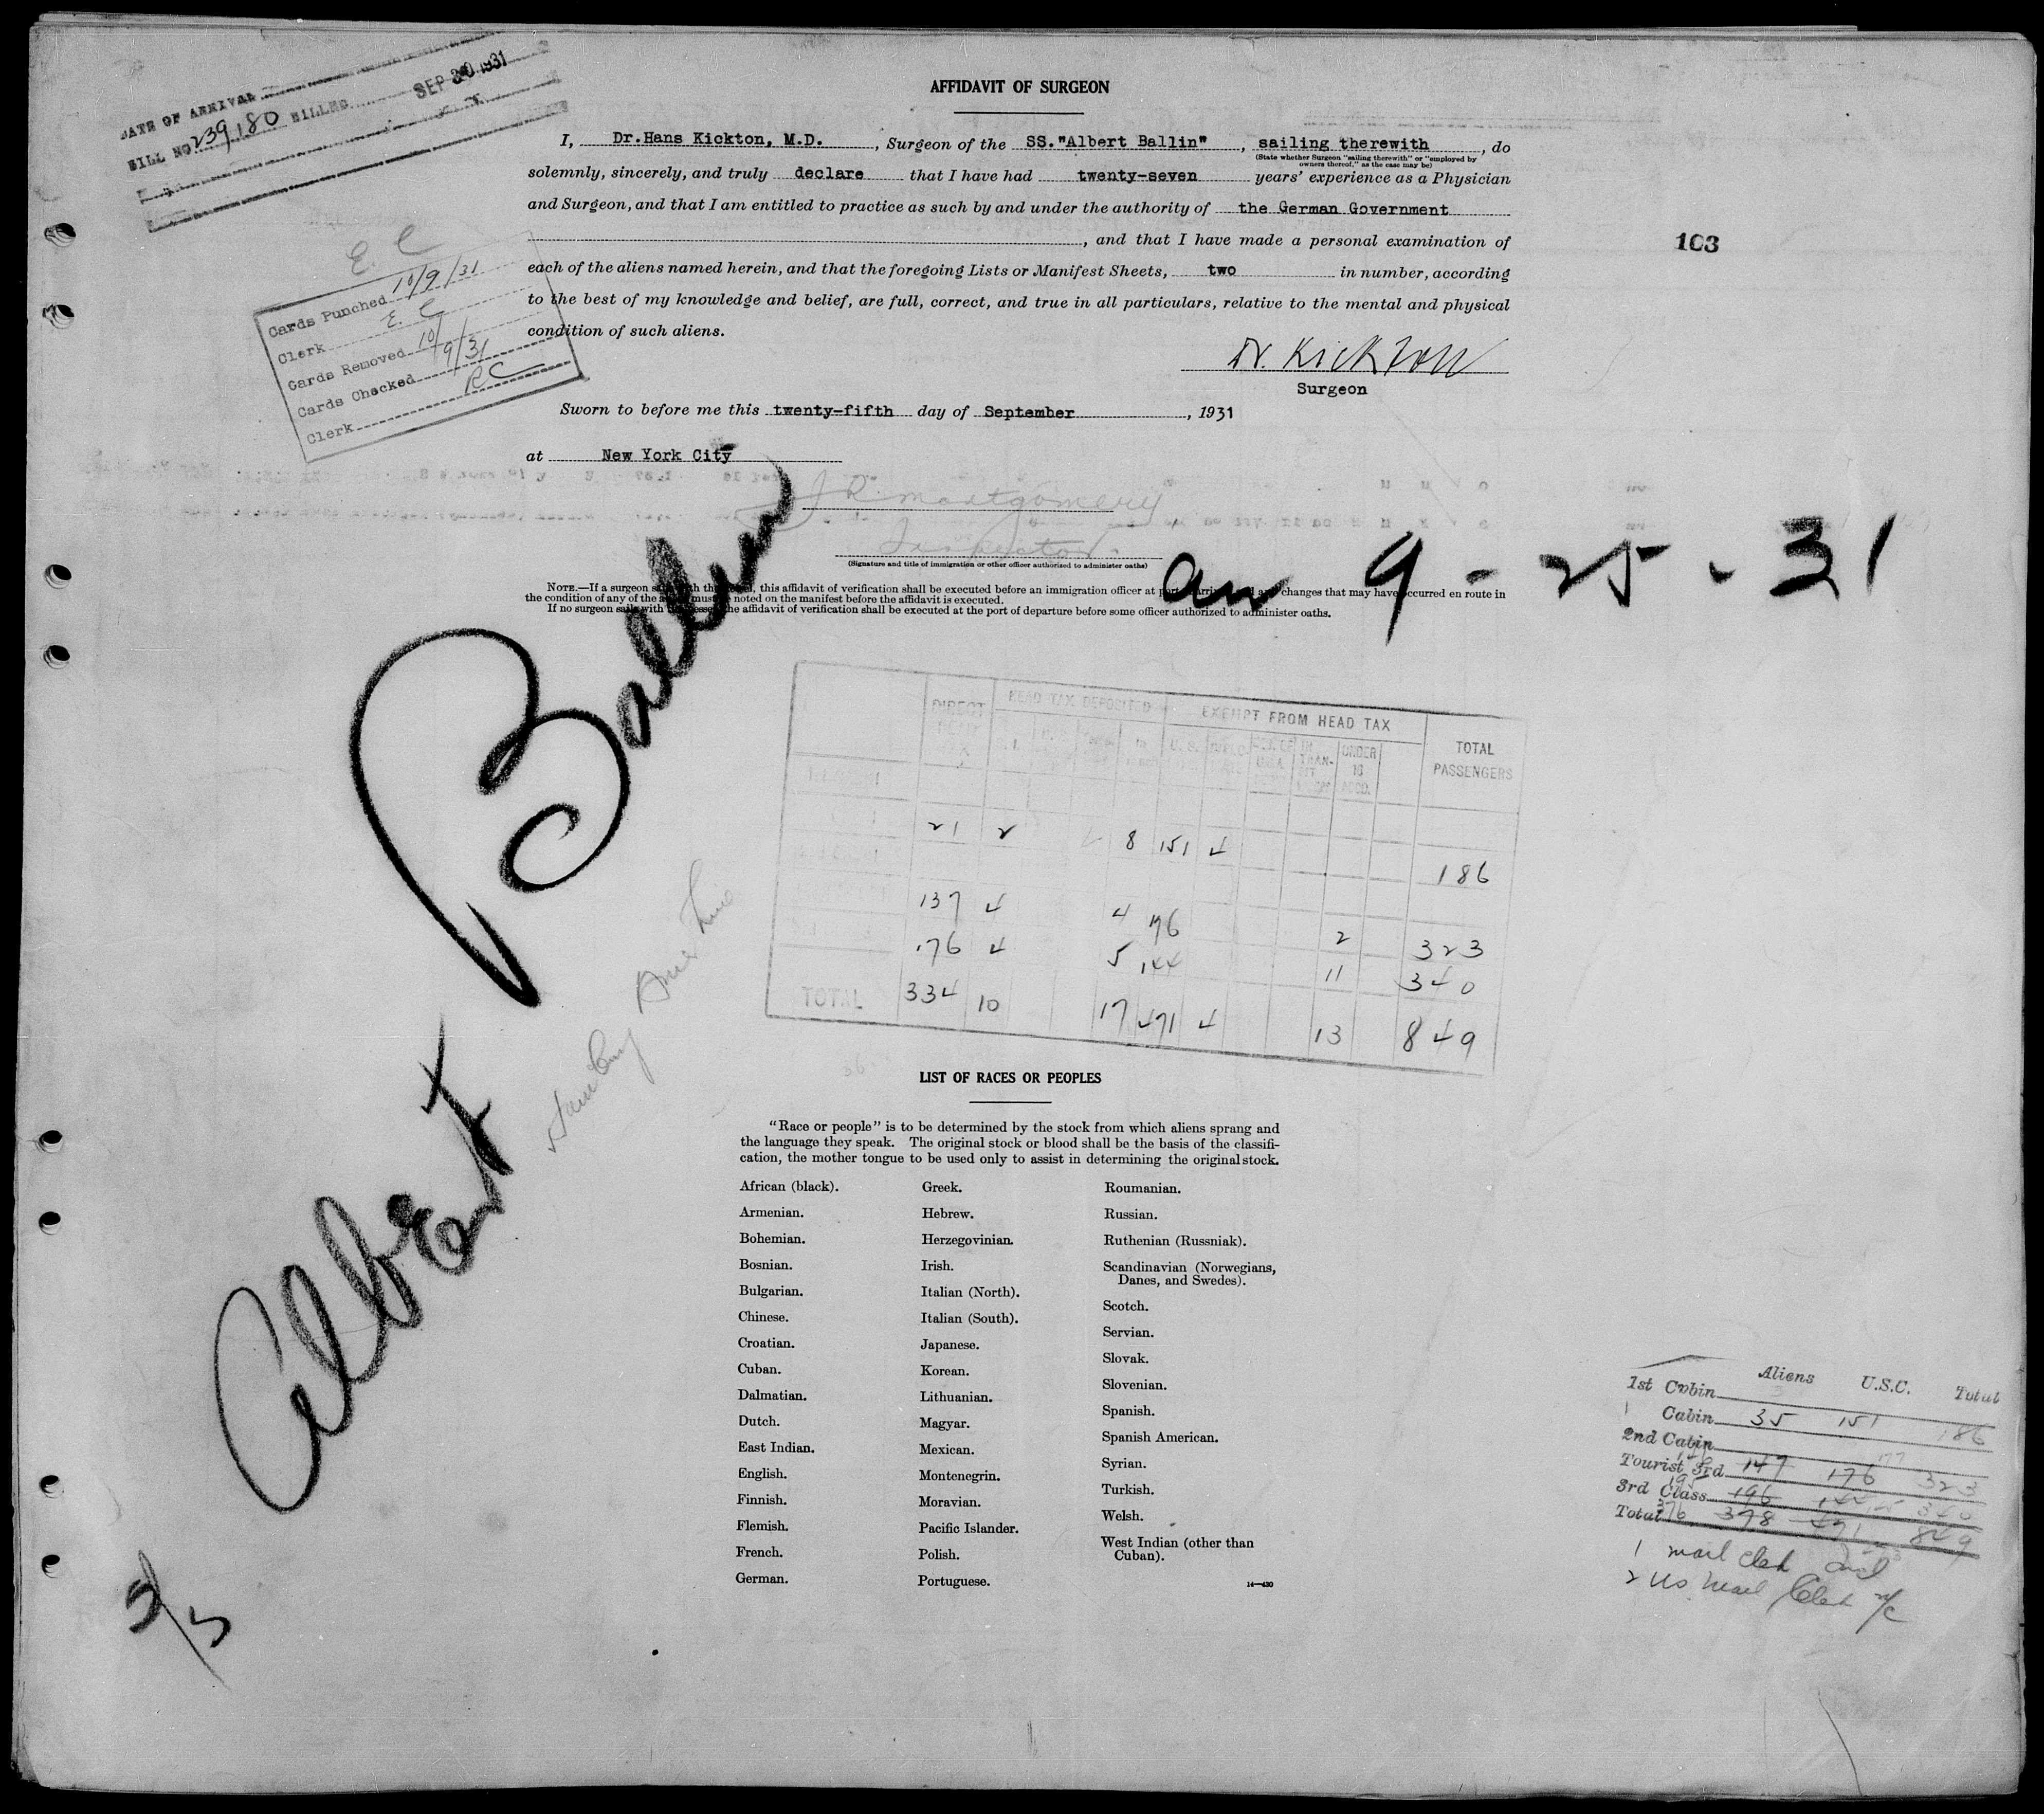 DATE OF ARRIVAL
BILL NO 239180 BILLED SEP 30 1931
AFFIDAVIT OF SURGEON
I, Dr.Hans Kickton, M.D., Surgeon of the SS."Albert Ballin", sailing therewith, do
(State whether Surgeon "sailing therewith" or "employed by
owners thereof," as the case may be)
solemnly, sincerely, and truly declare that I have had twenty-seven years' experience as a Physician
and Surgeon, and that I am entitled to practice as such by and under the authority of the German Government
, and that I have made a personal examination of
103
each of the aliens named herein, and that the foregoing Lists or Manifest Sheets, two in number, according
to the best of my knowledge and belief, are full, correct, and true in all particulars, relative to the mental and physical
condition of such aliens.
E. C
Cards Punched 10/9/31
Clerk E. C
Cards Removed 10/9/31
Cards Checked RC
Clerk
Dr. Kickton
Surgeon
Sworn to before me this twenty-fifth day of September, 1931
at New York City
J R Montgomery
Inspector.
(Signature and title of immigration or other officer authorized to administer oaths)
NOTE.—If a surgeon sails with the vessel, this affidavit of verification shall be executed before an immigration officer at port of arrival and any changes that may have occurred en route in
the condition of any of the aliens must be noted on the manifest before the affidavit is executed.
If no surgeon sails with the vessel the affidavit of verification shall be executed at the port of departure before some officer authorized to administer oaths.
Albert Ballin
arr 9 - 25 - 31
Hamburg Amer Line
DIRECT HEAD TAX DEPOSITED EXEMPT FROM HEAD TAX TOTAL PASSENGERS
U. S. IN TRAN-SIT UNDER 16 ACCD.
21 2 8 151 4 186
137 4 4 176 2 323
176 4 5 144 11 340
TOTAL 334 10 17 471 4 13 849
LIST OF RACES OR PEOPLES
"Race or people" is to be determined by the stock from which aliens sprang and
the language they speak. The original stock or blood shall be the basis of the classifi-
cation, the mother tongue to be used only to assist in determining the original stock.
African (black).
Armenian.
Bohemian.
Bosnian.
Bulgarian.
Chinese.
Croatian.
Cuban.
Dalmatian.
Dutch.
East Indian.
English.
Finnish.
Flemish.
French.
German.
Greek.
Hebrew.
Herzegovinian.
Irish.
Italian (North).
Italian (South).
Japanese.
Korean.
Lithuanian.
Magyar.
Mexican.
Montenegrin.
Moravian.
Pacific Islander.
Polish.
Portuguese.
Roumanian.
Russian.
Ruthenian (Russniak).
Scandinavian (Norwegians,
Danes, and Swedes).
Scotch.
Servian.
Slovak.
Slovenian.
Spanish.
Spanish American.
Syrian.
Turkish.
Welsh.
West Indian (other than
Cuban).
14—430
Aliens U.S.C. Total
1st Cabin
Cabin 35 151 186
2nd Cabin
Tourist 3rd 147 176 177 323
3rd Class 196 144 340
Total 376 378 471 849
1 mail clerk
2 US Mail Clerk
5/5